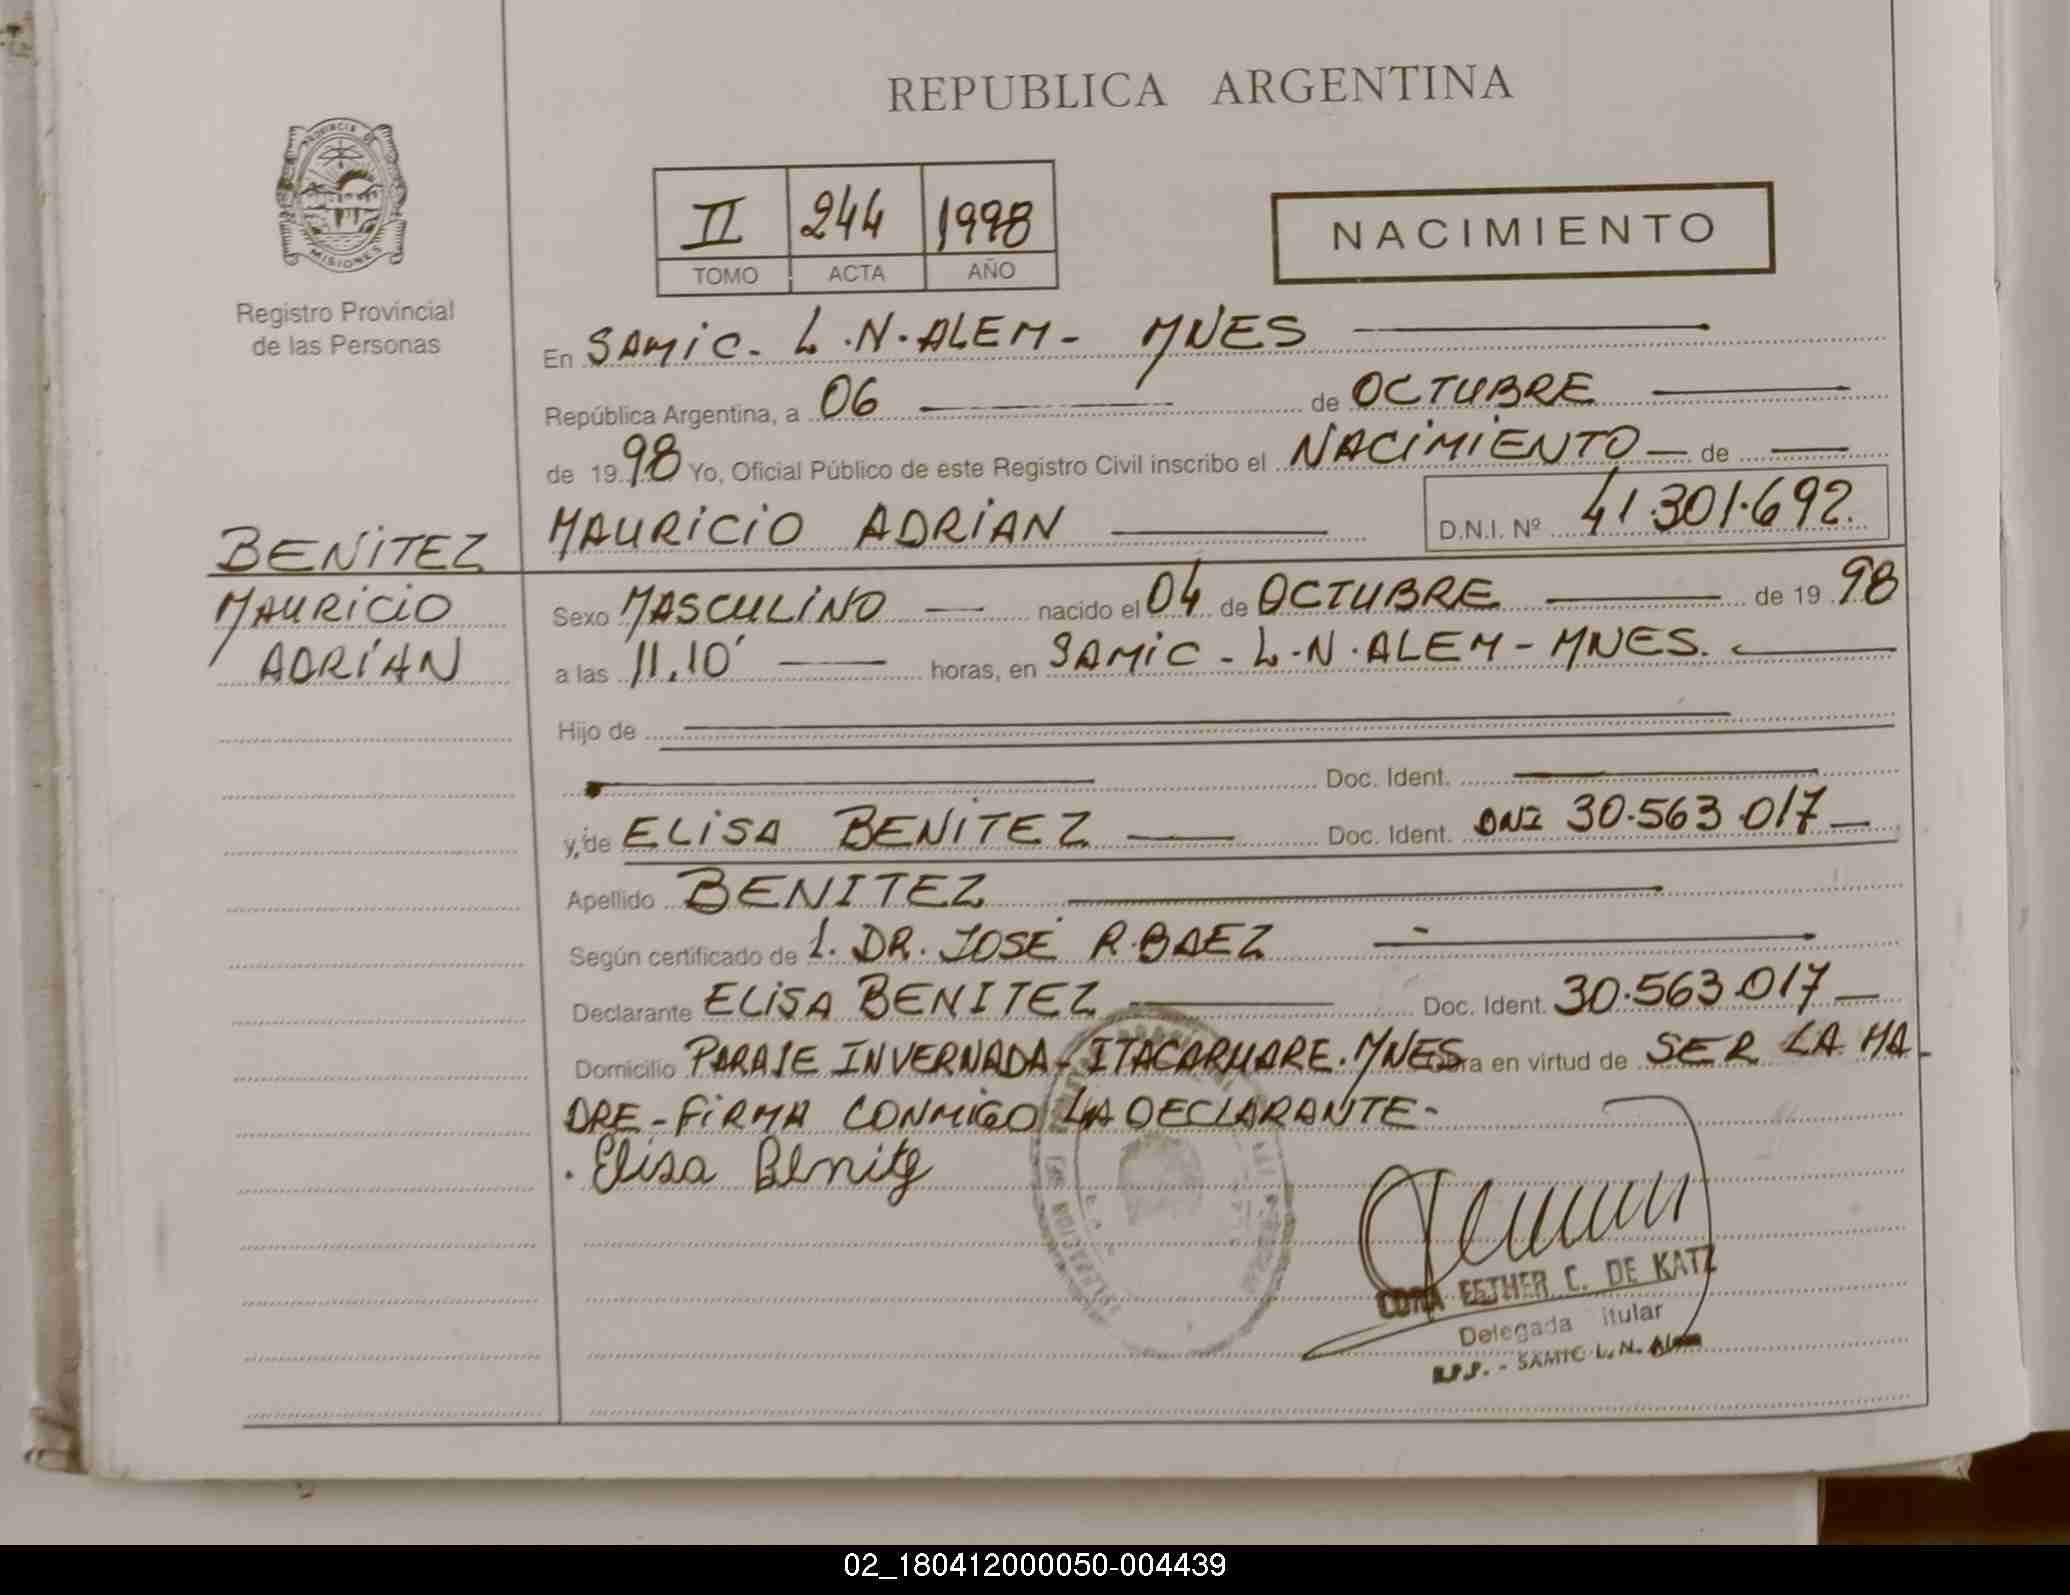 REPUBLICA ARGENTINA
PROVINCIA DE
MISIONES
Registro Provincial
de las Personas
II 244 1998
TOMO ACTA AÑO
NACIMIENTO
En SAMIC. L.N.ALEM- MNES
República Argentina, a 06 de OCTUBRE
de 1998 Yo, Oficial Público de este Registro Civil inscribo el NACIMIENTO de
MAURICIO ADRIAN D.N.I. Nº 41.301.692.
BENITEZ
MAURICIO
ADRIAN
Sexo MASCULINO nacido el 04 de OCTUBRE de 1998
a las 11.10' horas, en SAMIC - L.N.ALEM - MNES.
Hijo de
Doc. Ident.
y, de ELISA BENITEZ Doc. Ident. DNI 30.563.017
Apellido BENITEZ
Según certificado de DR. JOSÉ R. BAEZ
Declarante ELISA BENITEZ Doc. Ident. 30.563.017
Domicilio PARAJE INVERNADA - ITACARUARE. MNES en virtud de SER LA MA
DRE - FIRMA CONMIGO LA DECLARANTE-
Elisa Benitz
ESTHER C. DE KATZ
Delegada itular
R.P.P. - SAMIC L.N. Alem
02_180412000050-004439